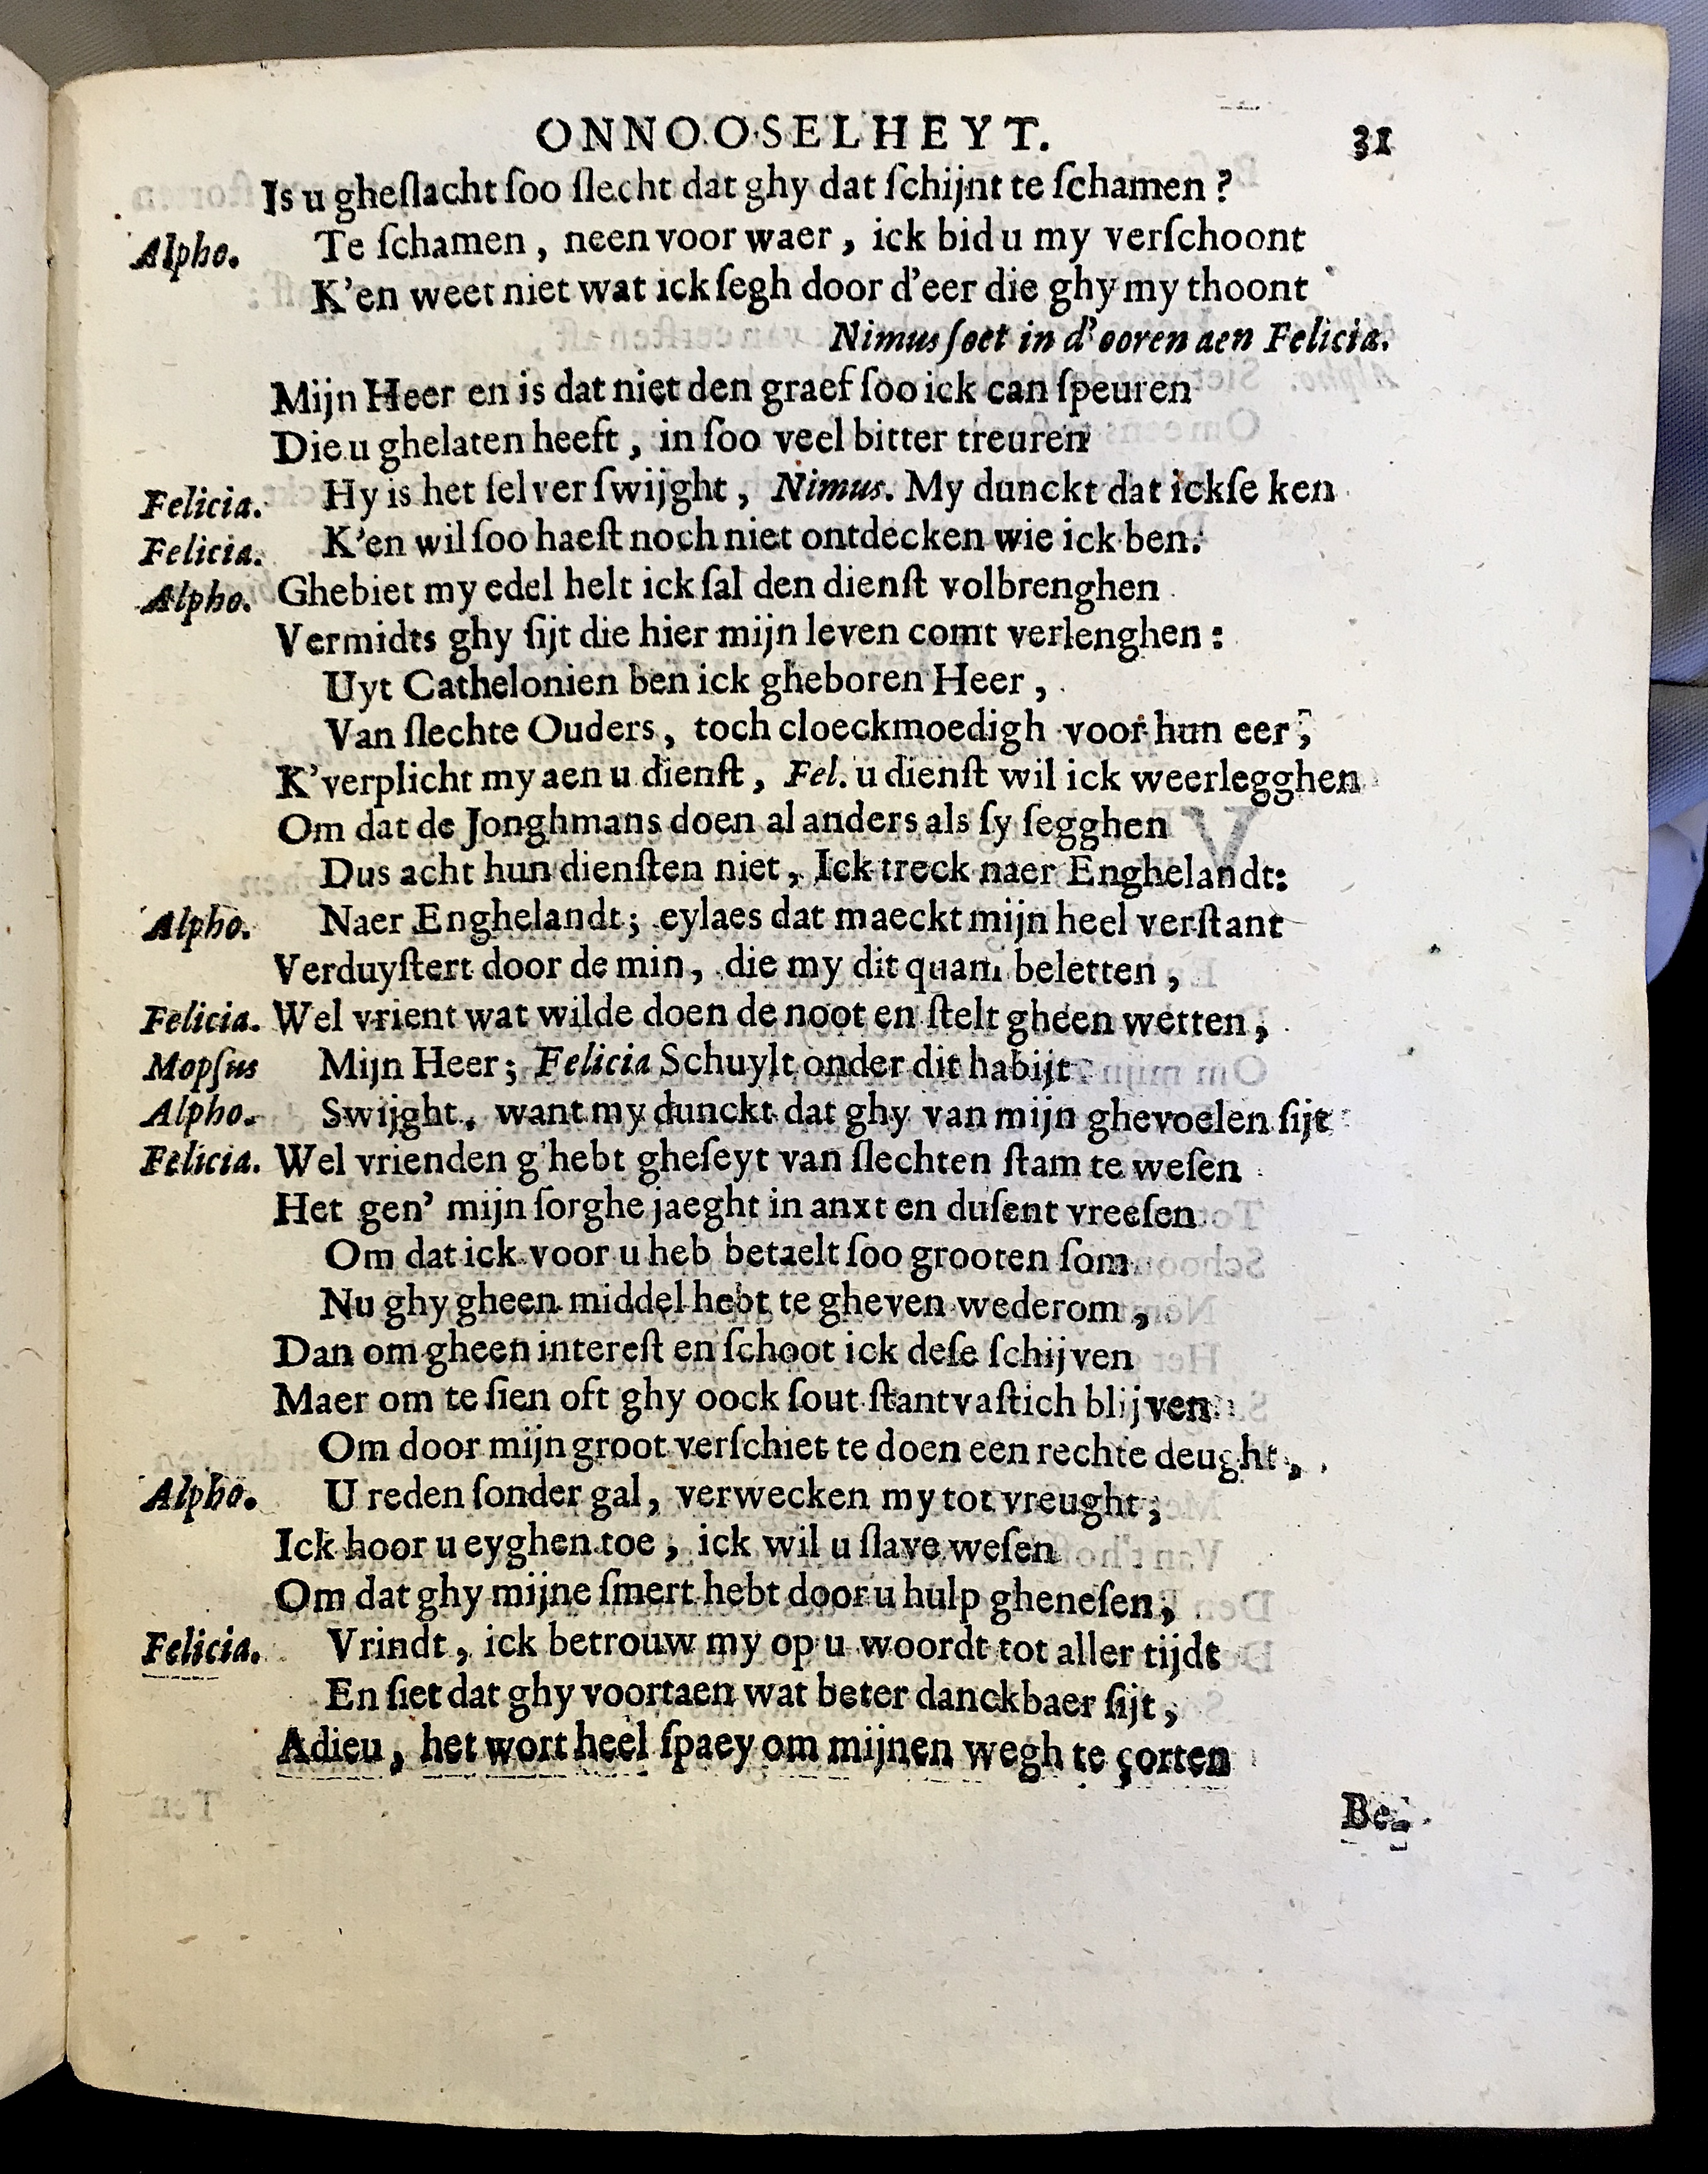 ONNOOSELHEYT. 31
Is u gheſlacht ſoo ſlecht dat ghy dat ſchijnt te ſchamen ?
Alpho. Te ſchamen , neen voor waer , ick bid u my verſchoont
K'en weet niet wat ick ſegh door d'eer die ghy my thoont
Nimus ſoet in d'ooren aen Felicia.
Mijn Heer en is dat niet den graef ſoo ick can ſpeuren
Die u ghelaten heeft , in ſoo veel bitter treuren
Felicia. Hy is het ſelver ſwijght , Nimus. My dunckt dat ickſe ken
Felicia. K'en wil ſoo haeſt noch niet ontdecken wie ick ben.
Alpho. Ghebiet my edel helt ick ſal den dienſt volbrenghen
Vermidts ghy ſijt die hier mijn leven comt verlenghen :
Uyt Cathelonien ben ick gheboren Heer ,
Van ſlechte Ouders , toch cloeckmoedigh voor hun eer ;
K'verplicht my aen u dienſt , Fel. u dienſt wil ick weerlegghen
Om dat de Jonghmans doen al anders als ſy ſegghen
Dus acht hun dienſten niet , Ick treck naer Enghelandt:
Alpho. Naer Enghelandt ; eylaes dat maeckt mijn heel verſtant
Verduyſtert door de min , die my dit quam beletten ,
Felicia. Wel vrient wat wilde doen de noot en ſtelt gheen wetten ,
Mopſus Mijn Heer ; Felicia Schuylt onder dit habijt
Alpho. Swijght , want my dunckt dat ghy van mijn ghevoelen ſijt
Felicia. Wel vrienden g'hebt gheſeyt van ſlechten ſtam te weſen
Het gen' mijn ſorghe jaeght in anxt en duſent vreeſen
Om dat ick voor u heb betaelt ſoo grooten ſom
Nu ghy gheen middel hebt te gheven wederom ,
Dan om gheen intereſt en ſchoot ick deſe ſchijven
Maer om te ſien oft ghy oock ſout ſtantvaſtich blijven
Om door mijn groot verſchiet te doen een rechte deught ,
Alpho. U reden ſonder gal , verwecken my tot vreught ;
Ick hoor u eyghen toe , ick wil u ſlave weſen
Om dat ghy mijne ſmert hebt door u hulp gheneſen ,
Felicia. Vrindt , ick betrouw my op u woordt tot aller tijdt
En ſiet dat ghy voortaen wat beter danckbaer ſijt ,
Adieu , het wort heel ſpaey om mijnen wegh te çorten
Be-